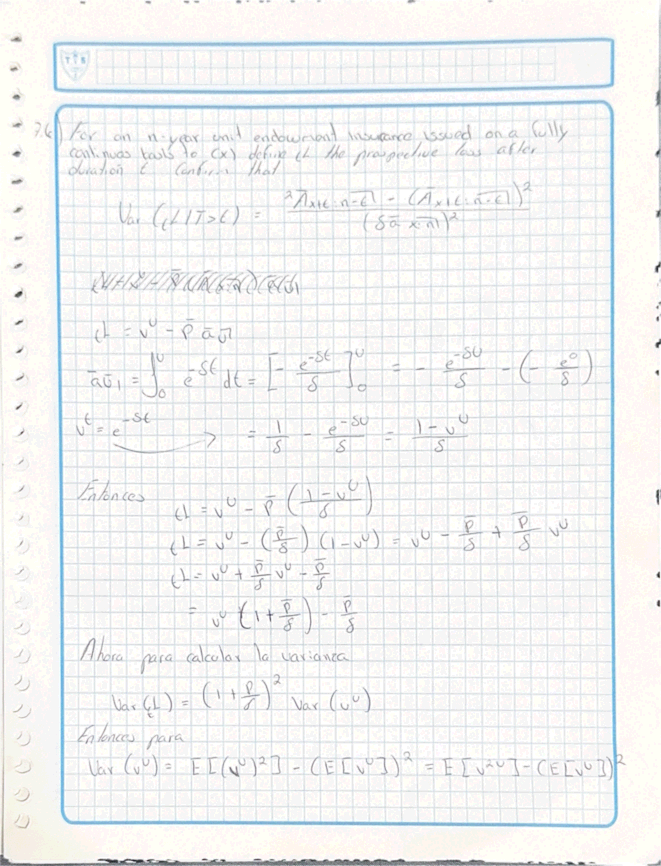 7.6) For an n-year unit endowment insurance issued on a fully
continuos basis to (x) define tL the prospective loss after
duration t Confirm that
Var (tL | T>t) = (²Āx+t:n-t| - (Āx+t:n-t|)²) / (δ ā x:n|)²
tL = v^U - P̄ ā U|
ā U| = ∫₀^U e^-δt dt = [- e^-δt / δ]₀^U = - e^-δU / δ - (- e^0 / δ)
v^t = e^-δt → = 1/δ - e^-δU / δ = (1 - v^U) / δ
Entonces
tL = v^U - P̄ ((1 - v^U) / δ)
tL = v^U - (P̄/δ) (1 - v^U) = v^U - P̄/δ + P̄/δ v^U
tL = v^U + P̄/δ v^U - P̄/δ
= v^U (1 + P̄/δ) - P̄/δ
Ahora para calcular la varianza
Var (tL) = (1 + P̄/δ)² Var (v^U)
Entonces para
Var (v^U) = E[(v^U)²] - (E[v^U])² = E[v^2U] - (E[v^U])²